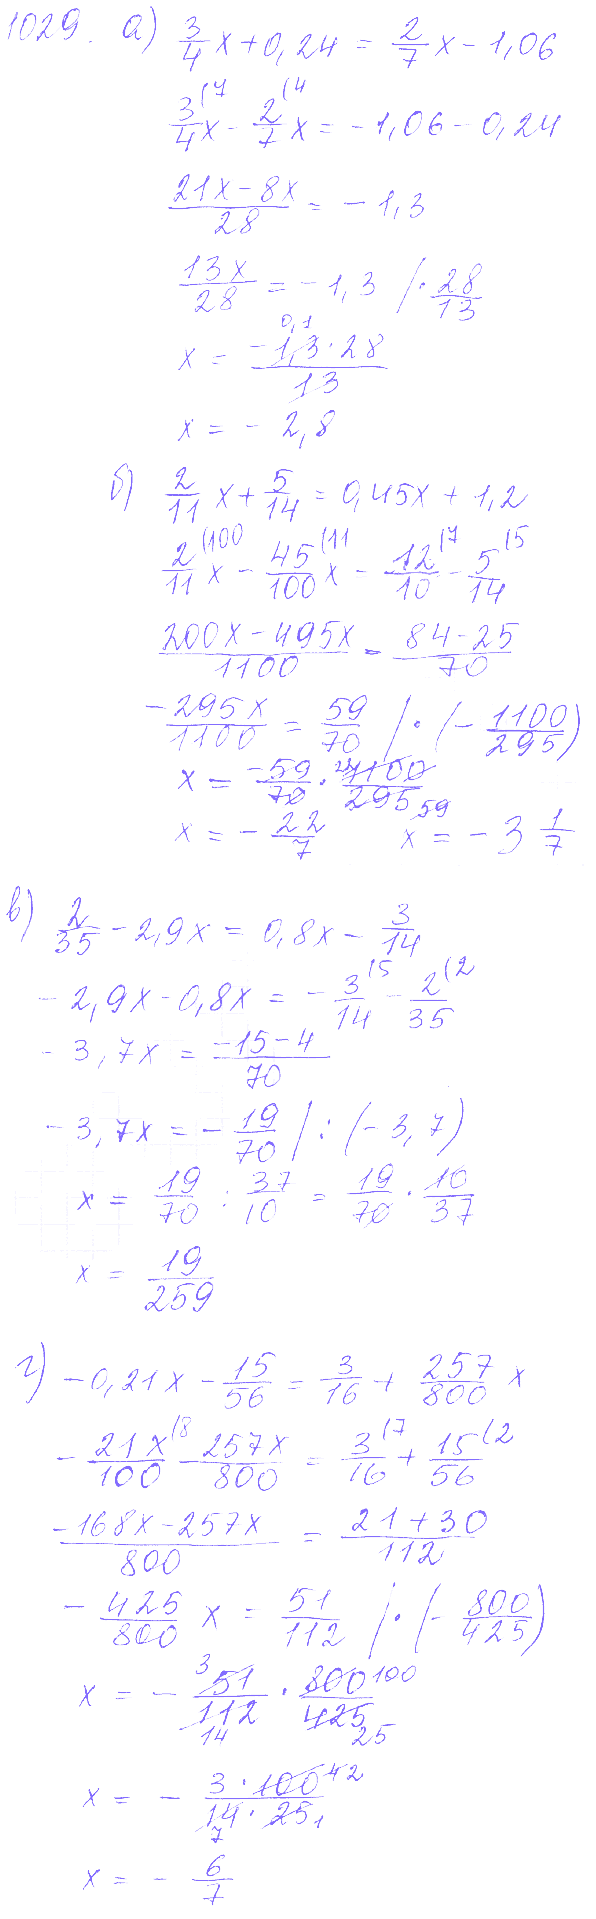 1029. а) 3/4 x + 0,24 = 2/7 x - 1,06
3/4 (7 x - 2/7 (4 x = - 1,06 - 0,24
(21x - 8x)/28 = - 1,3
13x/28 = - 1,3 / · 28/13
x = (-1,3 · 28)/13 0,1
x = - 2,8
б) 2/11 x + 5/14 = 0,45x + 1,2
2/11 (100 x - 45/100 (11 x = 12/10 (7 - 5/14 (5
(200x - 495x)/1100 = (84 - 25)/70
-295x/1100 = 59/70 / · (- 1100/295)
x = -59/70 · 1100/295 22 59
x = - 22/7 x = - 3 1/7
в) 2/35 - 2,9x = 0,8x - 3/14
- 2,9x - 0,8x = - 3/14 (5 - 2/35 (2
- 3,7x = (-15 - 4)/70
- 3,7x = - 19/70 / : (- 3,7)
x = 19/70 : 37/10 = 19/70 · 10/37
x = 19/259
г) - 0,21x - 15/56 = 3/16 + 257/800 x
- 21x/100 (8 - 257x/800 = 3/16 (7 + 15/56 (2
(-168x - 257x)/800 = (21 + 30)/112
- 425/800 x = 51/112 / · (- 800/425)
x = - 51/112 · 800/425 3 14 100 25
x = - (3 · 100)/(14 · 25) 42 7 1
x = - 6/7